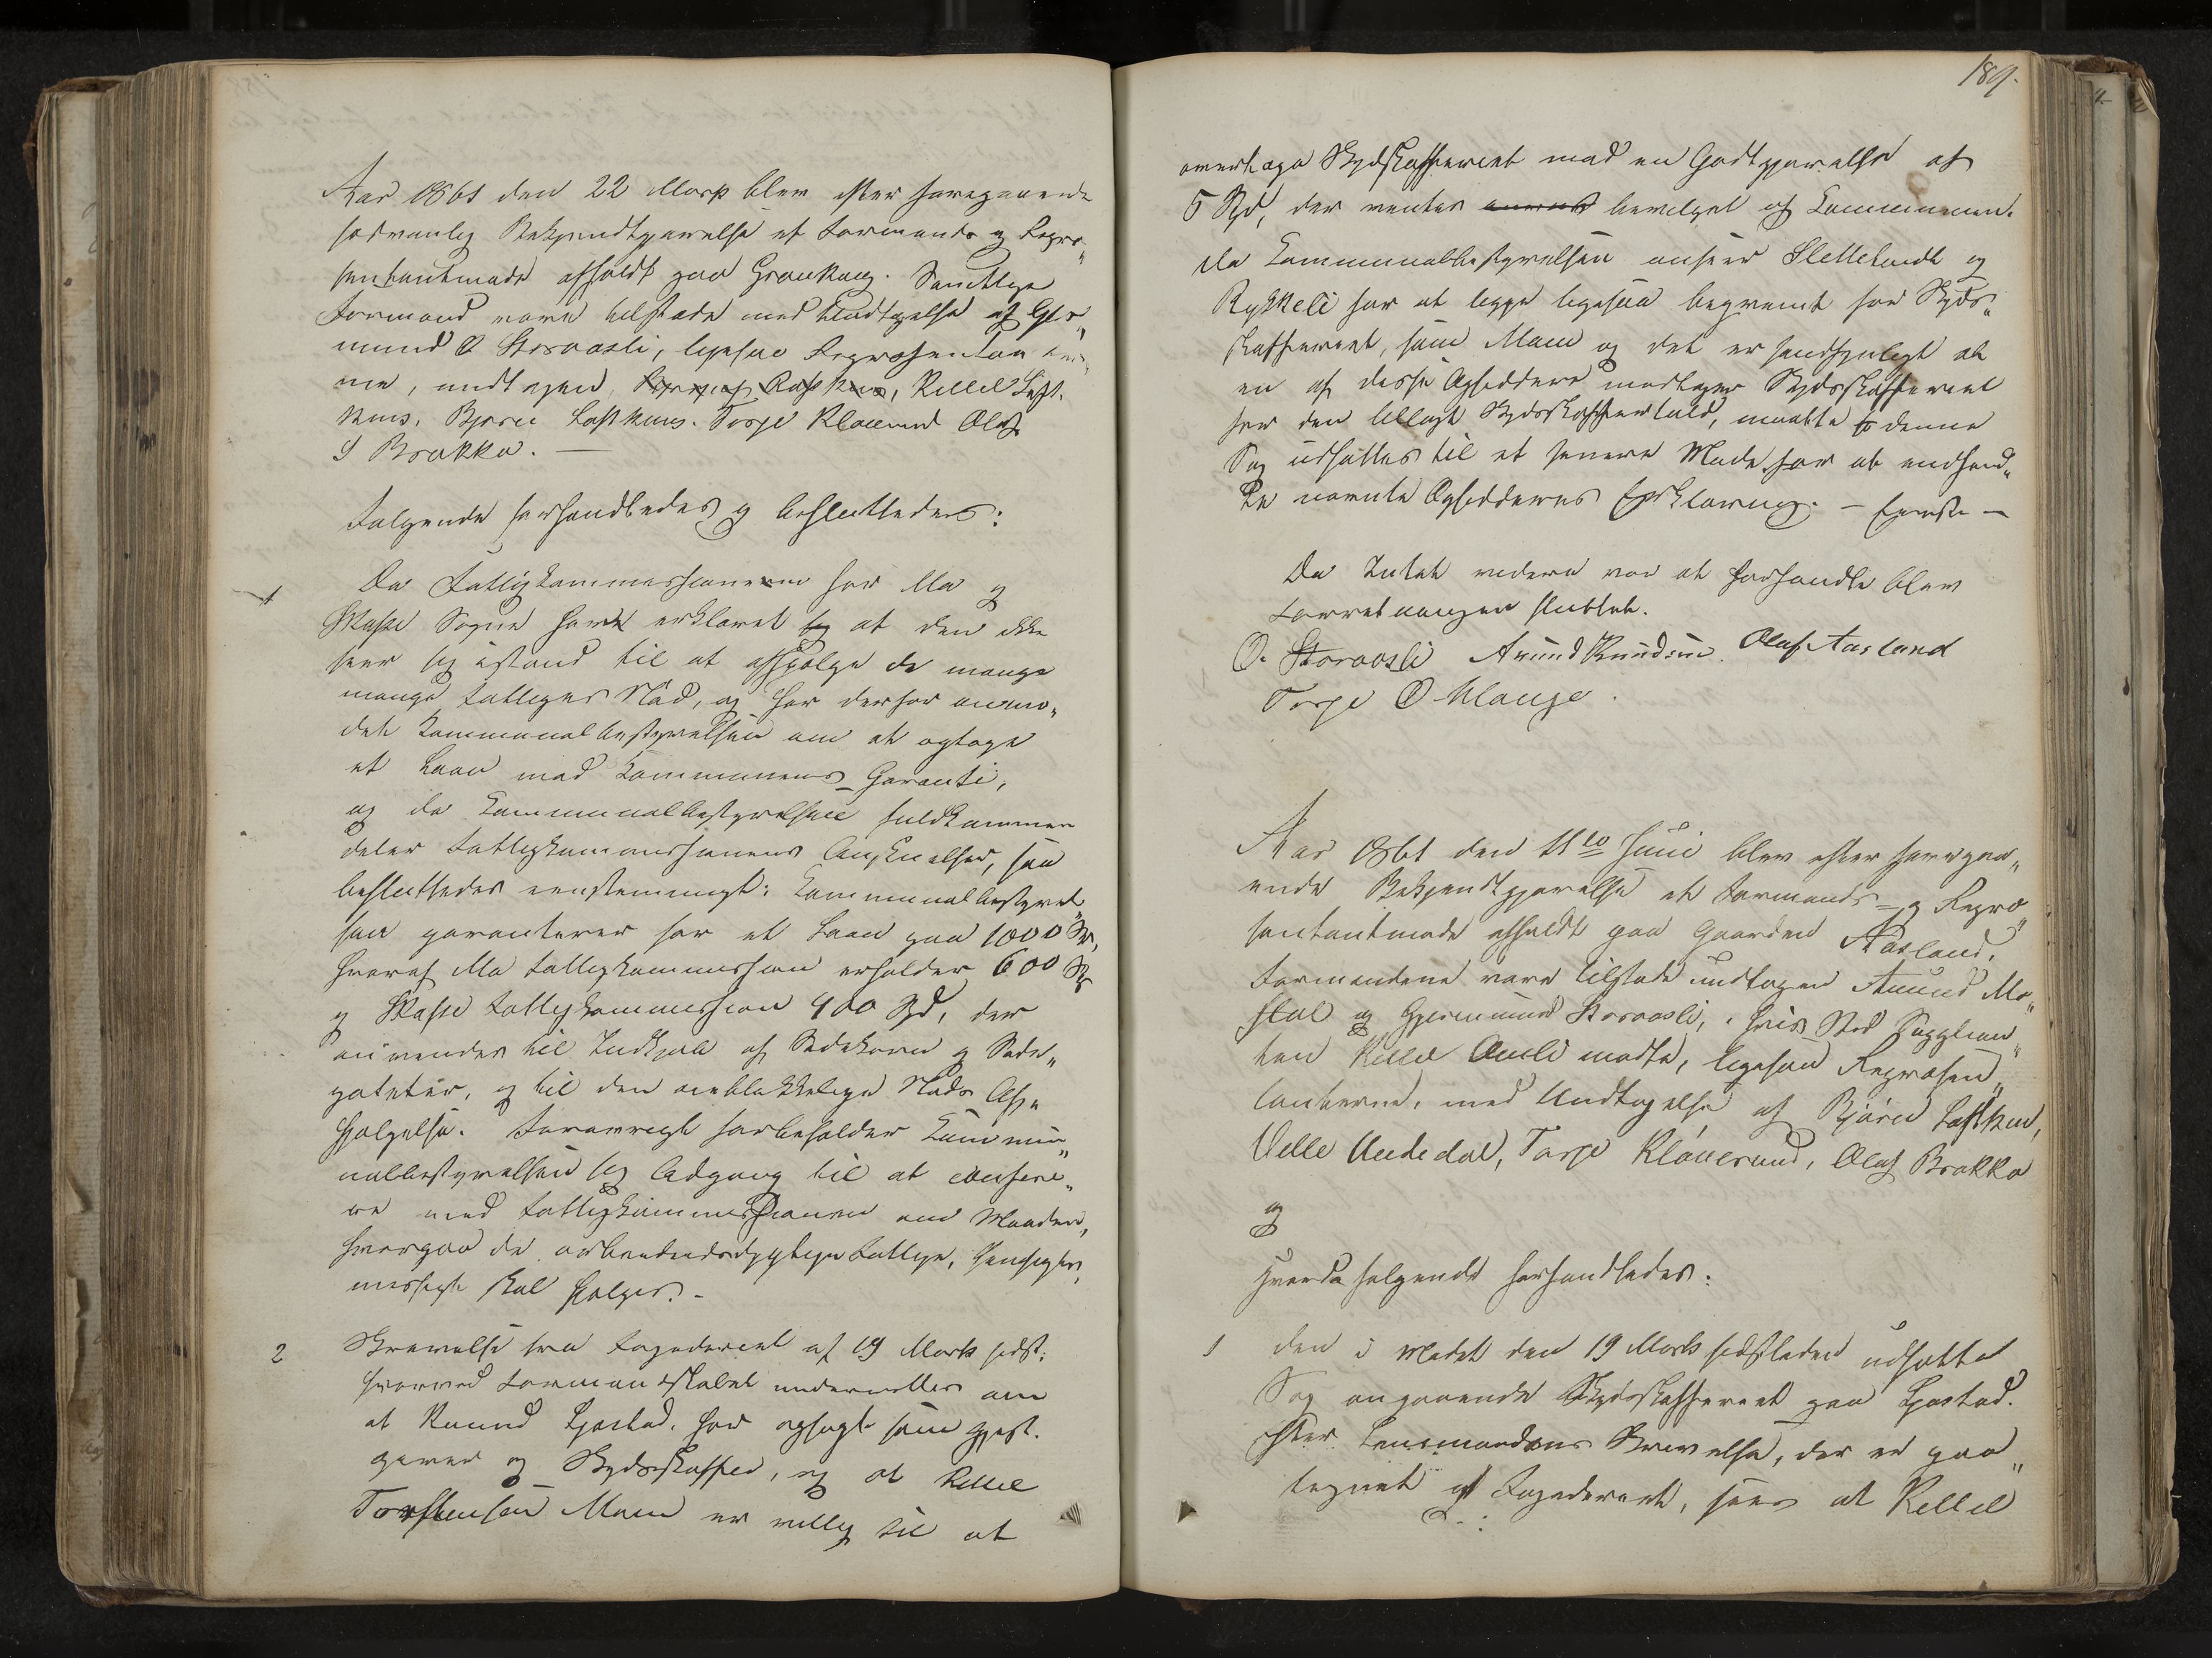 Aar 1861 den 22 Marts blev efter foregaaende
sedvanlig Bekjendtgjørelse et Formands og Repræ„
sentantmøde afholdt paa Graukaas. Samtlige
Formænd vare tilstede med Undtagelse af Gjer„
mund O Storaasli, ligesaa Repræsentan ter„
ne, undtagen, Kittil Loft„
huus, Bjørn Lofthuus. Torje Klauerud Olaf
S Brakka. —
Følgende forhandledes og besluttedes:
1 Da Fattigkommissionerne for Mo og
Skafse Sogne have erklæret at den ikke
seer sig istand til at afhjelpe de mange
mange Fattiges Nød, og har derfor anmo„
det Kommunalbestyrelsen om at optage
et Laan med Kommunens Garanti,
og da Kommunalbestyrelsen fuldkommen
deler Fattigkommissionens Anskuelser, saa
besluttedes eenstemmigt: Kommunalbestyrel„
sen garanterer for et Laan paa 1000 Spd,
hvoraf Mo Fattigkommission erholder 600 Spd
og Skafse Fattigkommission 400 Spd, der
anvendes til Indkjøb af Sædekorn og Sæde„
poteter, og til den øieblikkelige Nøds Af„
hjælpelse. Forøvrigt forbeholder Kommu„
nalbestyrelsen sig Adgang til at confere„
re med Fattigkommissionen om Maaden,
hvorpaa de arbeidsdygtige Fattige, hensigts„
messigst skal hjælpes. –
2 Skrivelse fra Fogderiet af 19 Marts sidstl:
hvorved Formandskabet underrettes om
at Aamund Ljostad, har opsagt sin Gjest„
giveri og Skydsskaffer, og at Kittil
Torstensen Moen er villig til at
189.
overtage Skydsskafferiet med en Godtgjørelse af
5 Spd, der ventes bevilget af Kommunen.
Da Kommunalbestyrelsen anseer Slettetuedt og
Rykkeli for at ligge ligesaa beqvemt for Skyds„
skafferiet, som Moen og det er sandsynligt at
en af disse Opsiddere modtager Skydsskafferiet
for den tillagte Skydsskaffertold, maatte denne
Sag udsættes til et senere Møde for at indhen„
te nævnte Opsidderes Erklæring. – Eenst. –
Da Intet videre var at forhandle blev
Forretningen sluttet.
O. Storaasli Amund Knudsen. Olaf Aasland
Torje O Mauge.
Aar 1861 den 11te Juni blev efter foregaa„
ende Bekjendtgjørelse et Formands- og Repræ„
sentantmøde afholdt paa Gaarden Aasland.
Formændene vare tilstede undtagen Amund Mo„
stul og Gjermund Storaasli, i hvis Sted Supplian„
ten Kittil Amli mødte, ligesaa Repræsen„
tanterne, med Undtagelse af Bjørn Lofthuu,
Velle Undedal, Torje Klauerud, Olaf Brakka
og
Hvorda følgende forhandledes:
1 Den i Mødet den 19 Marts sidstleden udsatte
Sag angaaende Skydsskafferiet paa Ljostad.
Efter Lensmandens Skrivelse, der er paa„
tegnet af Fogderiet, sees at Kittil